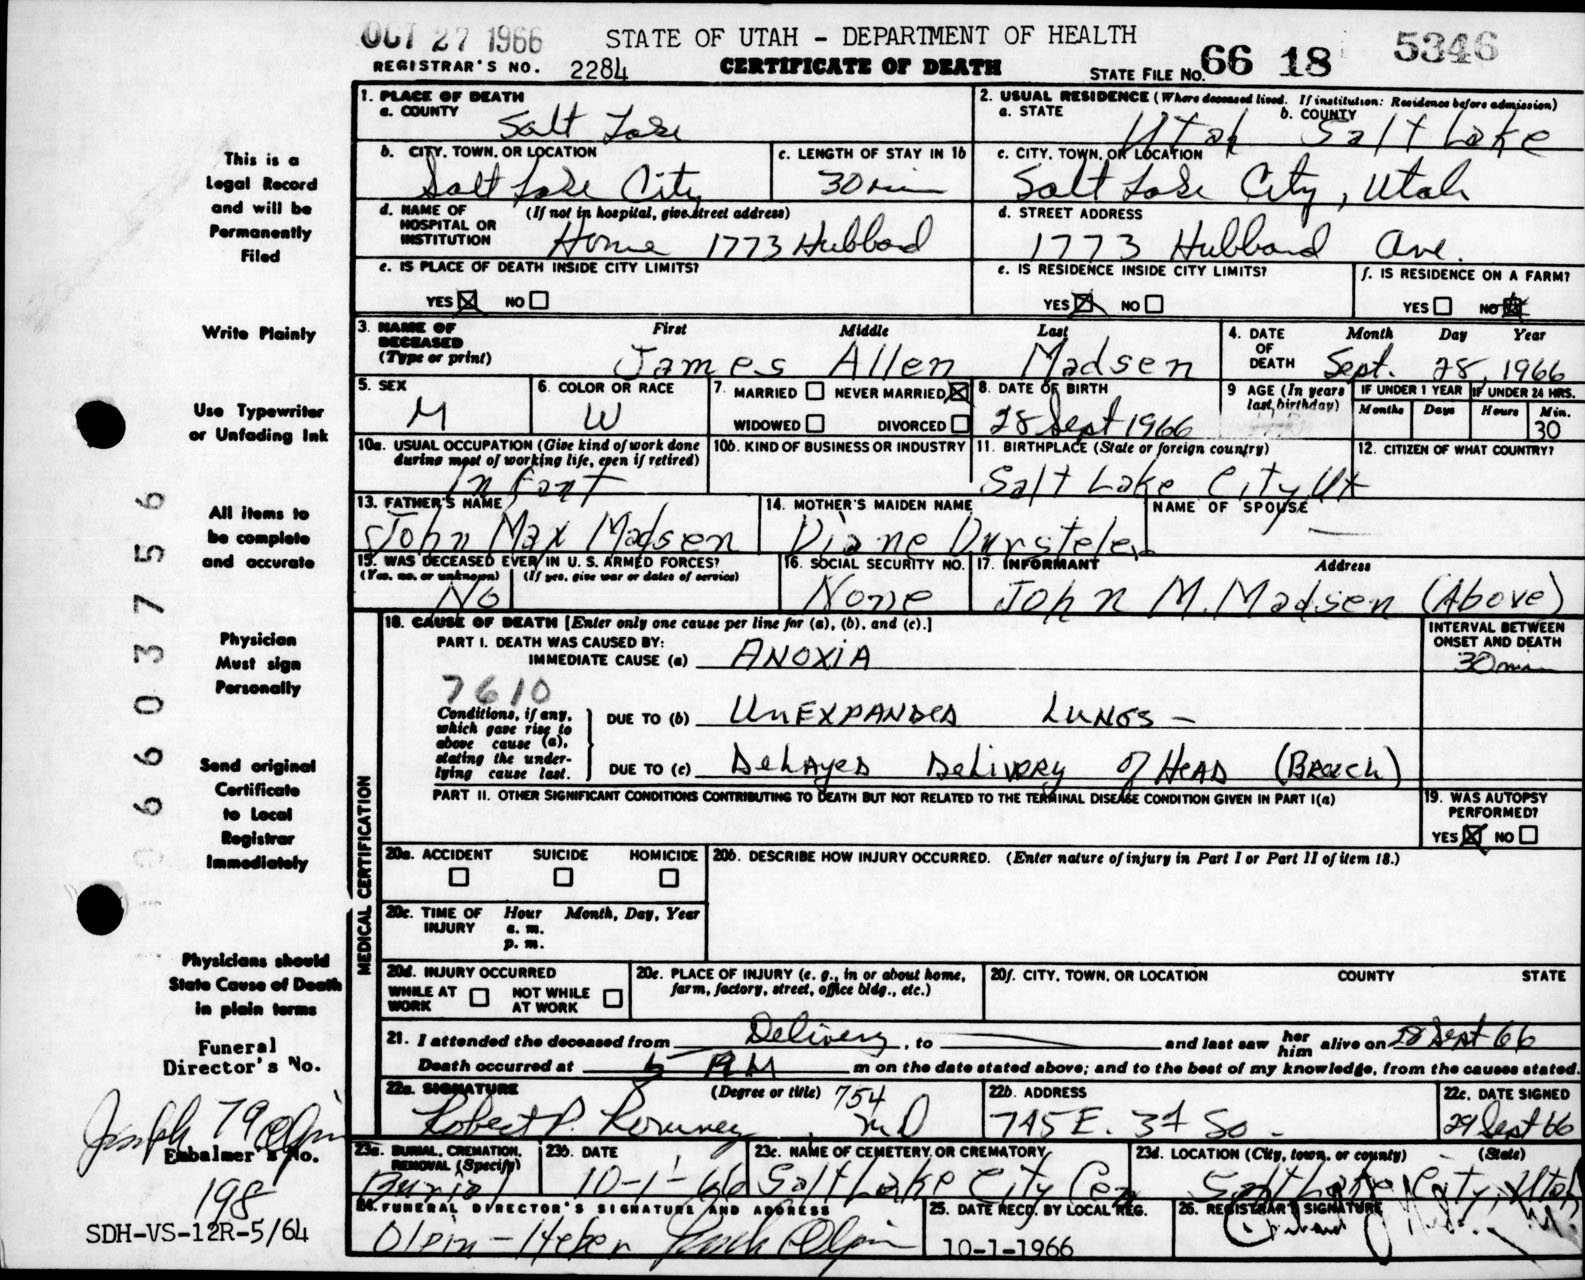 OCT 27 1966
STATE OF UTAH - DEPARTMENT OF HEALTH
REGISTRAR'S NO. 2284
CERTIFICATE OF DEATH
STATE FILE NO. 66 18 5346
1. PLACE OF DEATH
a. COUNTY
Salt Lake
2. USUAL RESIDENCE (Where deceased lived. If institution: Residence before admission)
a. STATE b. COUNTY
Utah Salt Lake
b. CITY, TOWN, OR LOCATION
Salt Lake City
c. LENGTH OF STAY IN 1b
30 min
c. CITY, TOWN, OR LOCATION
Salt Lake City, Utah
d. NAME OF HOSPITAL OR INSTITUTION (If not in hospital, give street address)
Home 1773 Hubbard
d. STREET ADDRESS
1773 Hubbard Ave.
e. IS PLACE OF DEATH INSIDE CITY LIMITS?
YES NO
e. IS RESIDENCE INSIDE CITY LIMITS?
YES NO
f. IS RESIDENCE ON A FARM?
YES NO
3. NAME OF DECEASED (Type or print)
First Middle Last
James Allen Madsen
4. DATE OF DEATH
Month Day Year
Sept. 28, 1966
5. SEX
M
6. COLOR OR RACE
W
7. MARRIED NEVER MARRIED
WIDOWED DIVORCED
8. DATE OF BIRTH
28 Sept 1966
9 AGE (In years last birthday)
IF UNDER 1 YEAR IF UNDER 24 HRS.
Months Days Hours Min.
30
10a. USUAL OCCUPATION (Give kind of work done during most of working life, even if retired)
Infant
10b. KIND OF BUSINESS OR INDUSTRY
11. BIRTHPLACE (State or foreign country)
Salt Lake City, Ut
12. CITIZEN OF WHAT COUNTRY?
13. FATHER'S NAME
John Max Madsen
14. MOTHER'S MAIDEN NAME
Diane Dursteler
NAME OF SPOUSE
15. WAS DECEASED EVER IN U. S. ARMED FORCES?
(Yes, no, or unknown) (If yes, give war or dates of service)
No
16. SOCIAL SECURITY NO.
None
17. INFORMANT Address
John M. Madsen (Above)
18. CAUSE OF DEATH [Enter only one cause per line for (a), (b), and (c).]
PART I. DEATH WAS CAUSED BY:
IMMEDIATE CAUSE (a) ANOXIA
INTERVAL BETWEEN ONSET AND DEATH
30 min
7610
Conditions, if any, which gave rise to above cause (a), stating the underlying cause last.
DUE TO (b) UNEXPANDED LUNGS -
DUE TO (c) DELAYED DELIVERY of HEAD (BREECH)
PART II. OTHER SIGNIFICANT CONDITIONS CONTRIBUTING TO DEATH BUT NOT RELATED TO THE TERMINAL DISEASE CONDITION GIVEN IN PART I(a)
19. WAS AUTOPSY PERFORMED?
YES NO
MEDICAL CERTIFICATION
20a. ACCIDENT SUICIDE HOMICIDE
20b. DESCRIBE HOW INJURY OCCURRED. (Enter nature of injury in Part I or Part II of item 18.)
20c. TIME OF INJURY
Hour Month, Day, Year
a. m.
p. m.
20d. INJURY OCCURRED
WHILE AT WORK NOT WHILE AT WORK
20e. PLACE OF INJURY (e. g., in or about home, farm, factory, street, office bldg., etc.)
20f. CITY, TOWN, OR LOCATION COUNTY STATE
21. I attended the deceased from Delivery, to and last saw her him alive on 28 Sept 66
Death occurred at 5 AM m on the date stated above; and to the best of my knowledge, from the causes stated.
22a. SIGNATURE (Degree or title)
Robert P. Romney MD
754
22b. ADDRESS
745 E. 3d So.
22c. DATE SIGNED
29 Sept 66
23a. BURIAL, CREMATION, REMOVAL (Specify)
Burial
23b. DATE
10-1-66
23c. NAME OF CEMETERY OR CREMATORY
Salt Lake City Cem
23d. LOCATION (City, town, or county) (State)
Salt Lake City, Utah
24. FUNERAL DIRECTOR'S SIGNATURE AND ADDRESS
Olpin-Heber Joseph Olpin
25. DATE RECD. BY LOCAL REG.
10-1-1966
26. REGISTRAR'S SIGNATURE
This is a
Legal Record
and will be
Permanently
Filed
Write Plainly
Use Typewriter
or Unfading Ink
All items to
be complete
and accurate
Physician
Must sign
Personally
Send original
Certificate
to Local
Registrar
Immediately
Physicians should
State Cause of Death
in plain terms
Funeral
Director's No.
Joseph 79 Olpin
Embalmer's No.
198
SDH-VS-12R-5/64
6603756